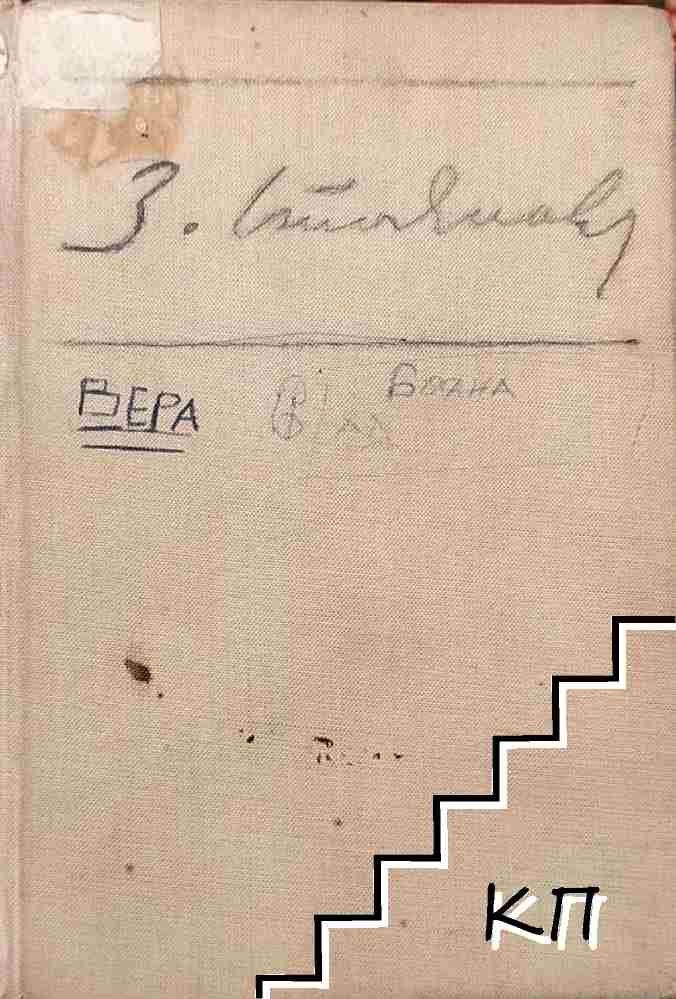 З. Стоянов
ВЕРА
Бояна
КП